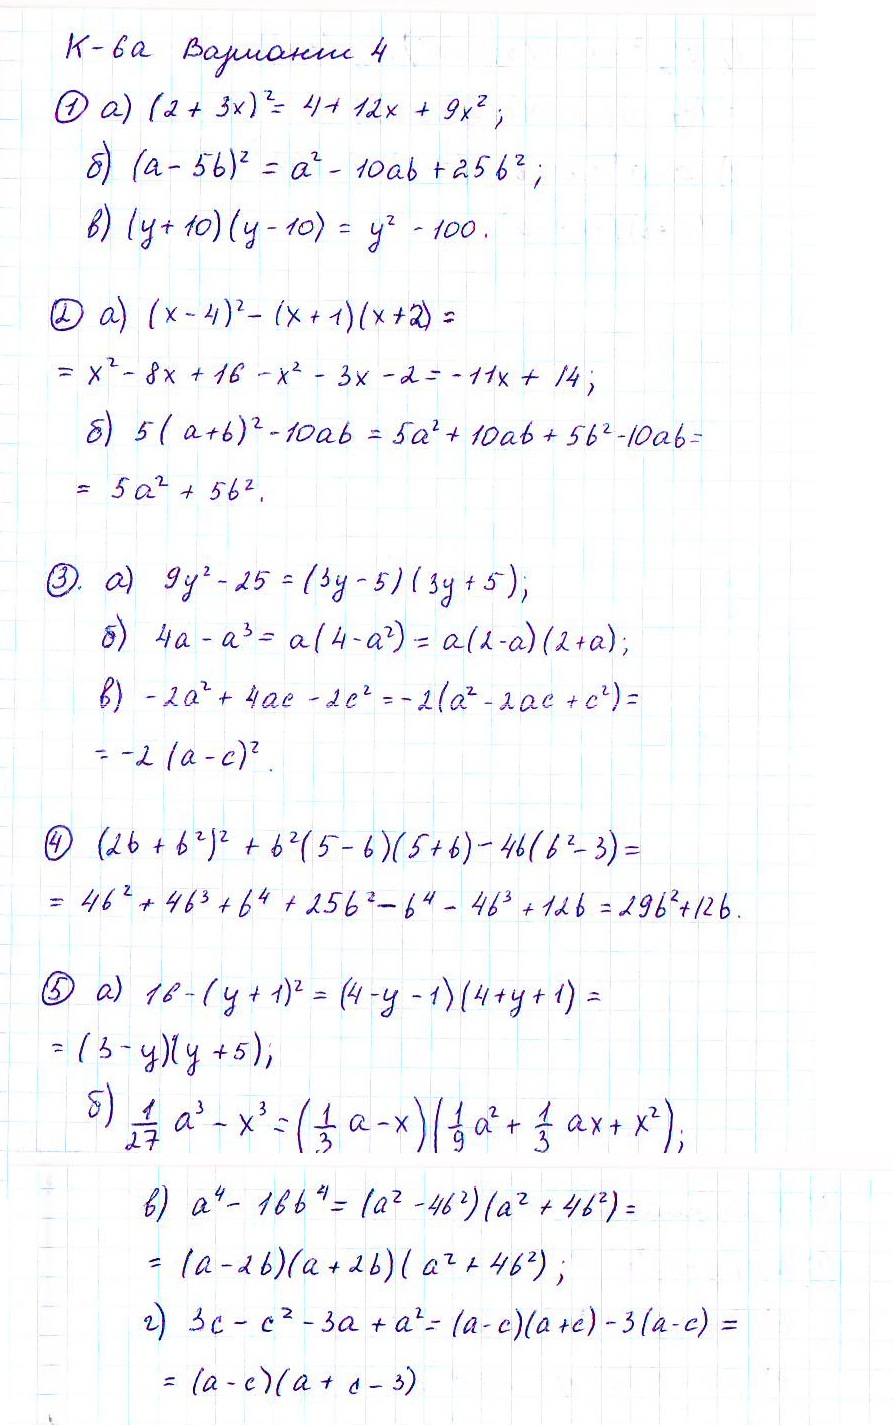 К-6а Вариант 4
① а) (2 + 3x)² = 4 + 12x + 9x²;
б) (a - 5b)² = a² - 10ab + 25b²;
в) (y + 10)(y - 10) = y² - 100.
② а) (x - 4)² - (x + 1)(x + 2) =
= x² - 8x + 16 - x² - 3x - 2 = -11x + 14;
б) 5(a+b)² - 10ab = 5a² + 10ab + 5b² - 10ab =
= 5a² + 5b².
③. а) 9y² - 25 = (3y - 5)(3y + 5);
б) 4a - a³ = a(4 - a²) = a(2 - a)(2 + a);
в) -2a² + 4ac - 2c² = -2(a² - 2ac + c²) =
= -2(a - c)².
④ (2b + b²)² + b²(5 - b)(5 + b) - 4b(b² - 3) =
= 4b² + 4b³ + b⁴ + 25b² - b⁴ - 4b³ + 12b = 29b² + 12b.
⑤ а) 16 - (y + 1)² = (4 - y - 1)(4 + y + 1) =
= (3 - y)(y + 5);
б) 1/27 a³ - x³ = (1/3 a - x)(1/9 a² + 1/3 ax + x²);
в) a⁴ - 16b⁴ = (a² - 4b²)(a² + 4b²) =
= (a - 2b)(a + 2b)(a² + 4b²);
г) 3c - c² - 3a + a² = (a - c)(a + c) - 3(a - c) =
= (a - c)(a + c - 3)